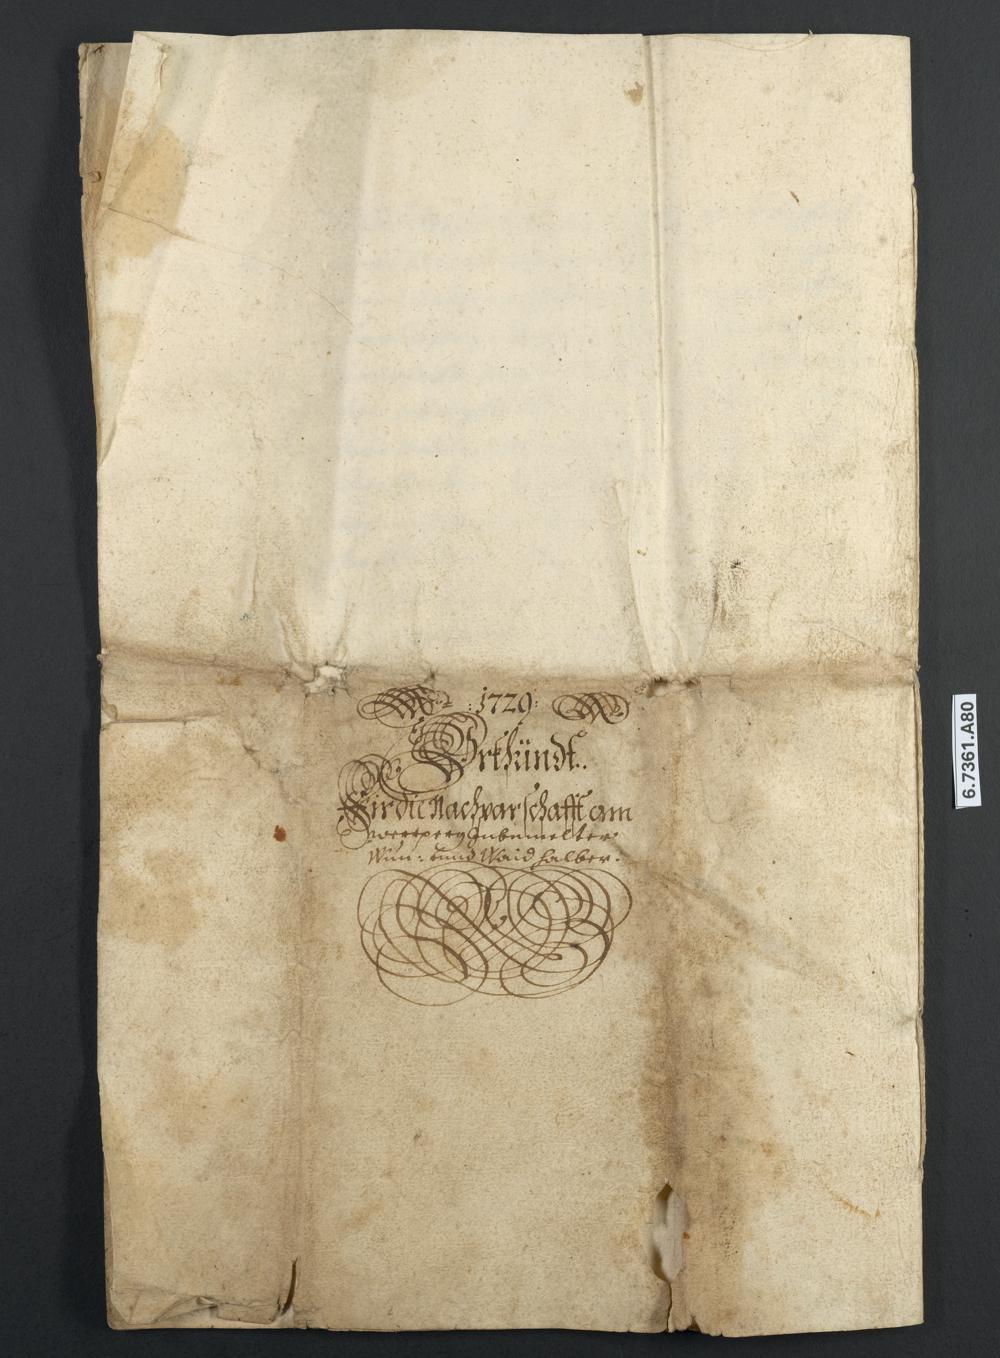 : 1729 :
Vrkhündt.
Fir die Nachparschafft am
inbemelter
Wun- unnd Waid halber.
6.7361.A80